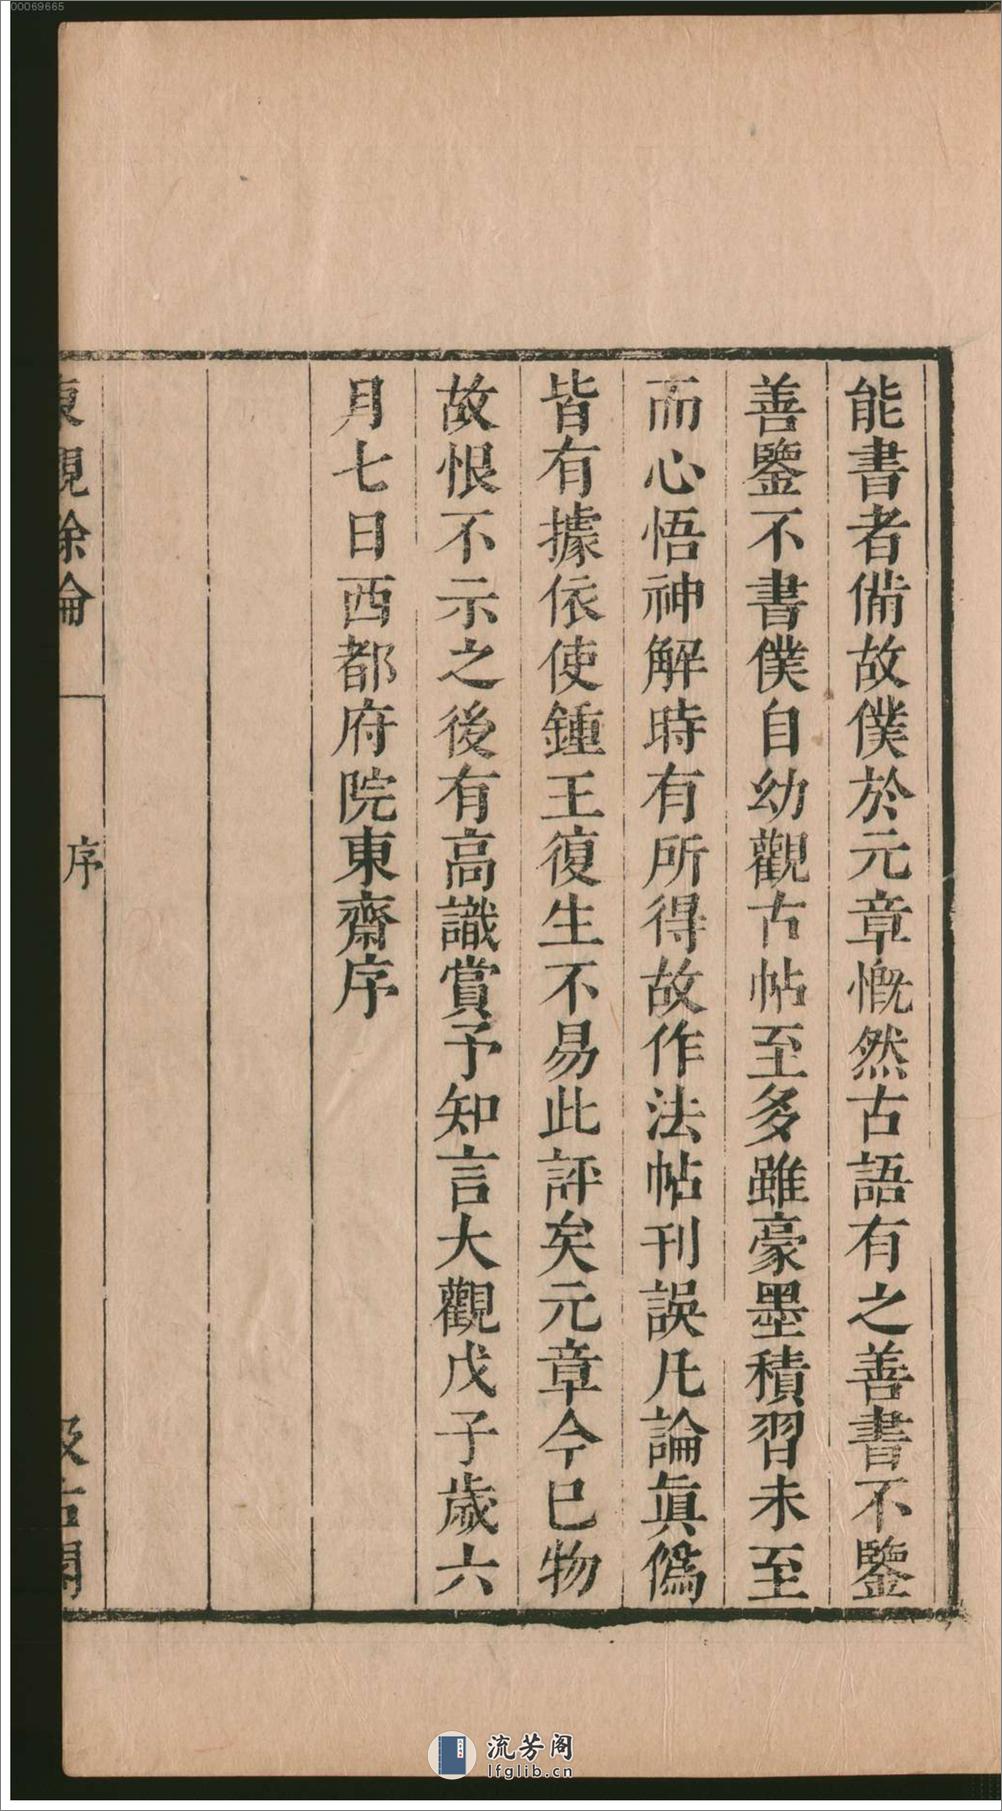 00069665
能書者備故僕於元章慨然古語有之善書不鑒
善鑒不書僕自幼觀古帖至多雖豪墨積習未至
而心悟神解時有所得故作法帖刊誤凡論眞僞
皆有據依使鍾王復生不易此評矣元章今已物
故恨不示之後有高識賞予知言大觀戊子歲六
月七日西都府院東齋序
東觀餘論
序
汲古閣
流芳阁
lfglib.cn